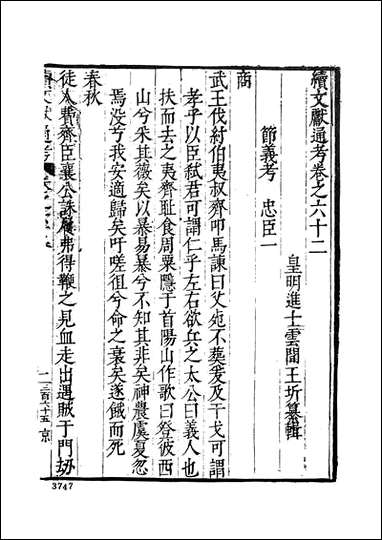 續文獻通考卷之六十二
皇明進士雲間王圻纂輯
節義考 忠臣一
商
武王伐紂伯夷叔齊叩馬諫曰父死不葬爰及干戈可謂
孝乎以臣弑君可謂仁乎左右欲兵之太公曰義人也
扶而去之夷齊耻食周粟隱于首陽山作歌曰登彼西
山兮采其薇矣以暴易暴兮不知其非矣神農虞夏忽
焉没兮我安適歸矣吁嗟徂兮命之衰矣遂餓而死
春秋
徒人費齊臣襄公誅屨弗得鞭之見血走出遇賊于門刼
二百六十五 京
3747